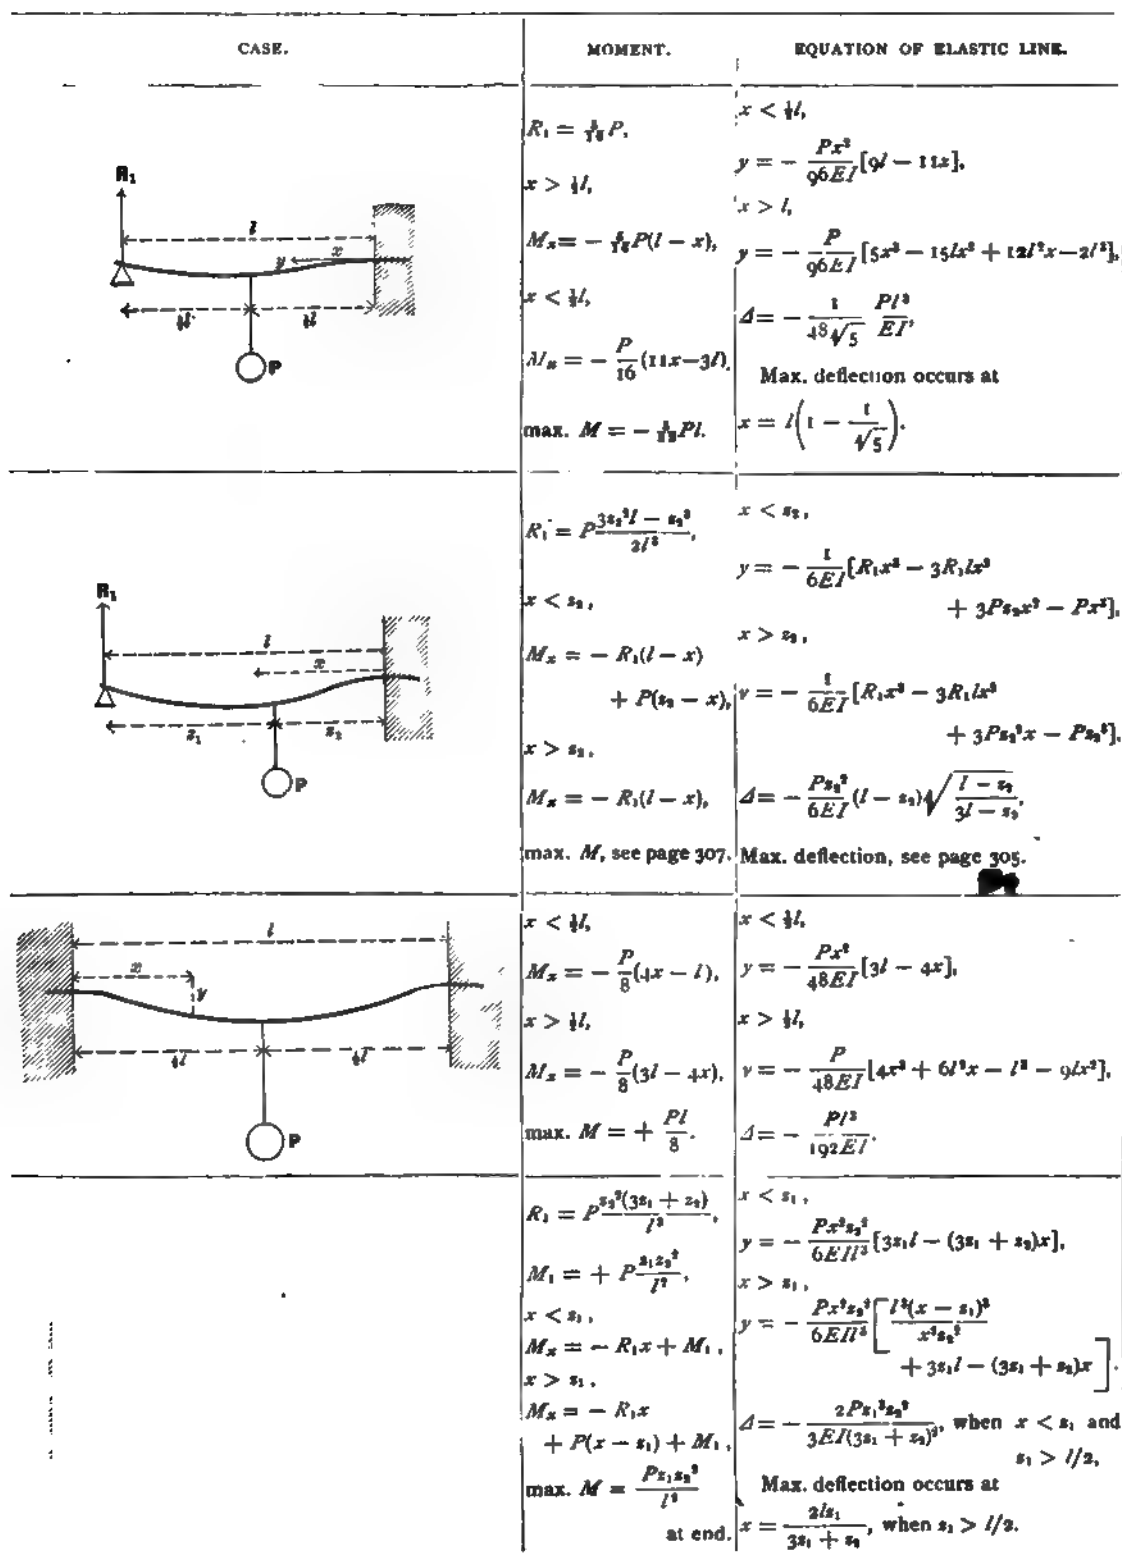 CASE. MOMENT. EQUATION OF ELASTIC LINE.
R₁
l
x
y
½l ½l
P
R₁ = 5/16 P,
x > ½l,
Mₓ = − 5/16 P(l − x),
x < ½l,
Mₓ = − P/16 (11x−3l),
max. M = − Pl.
x < ½l,
y = − Px²/96EI [9l − 11x],
x > l,
y = − P/96EI [5x³ − 15lx² + 12l²x−2l³],
Δ = − 1/48√5 Pl³/EI,
Max. deflection occurs at
x = l(1 − 1/√5).
R₁
l
x
z₁ z₂
P
R₁ = P (3z₂²l − z₂³)/2l³,
x < z₂,
Mₓ = − R₁(l − x)
+ P(z₂ − x),
x > z₂,
Mₓ = − R₁(l − x),
max. M, see page 307.
x < z₂,
y = − 1/6EI [R₁x³ − 3R₁lx²
+ 3Pz₂x² − Px³],
x > z₂,
y = − 1/6EI [R₁x³ − 3R₁lx²
+ 3Pz₂²x − Pz₂³],
Δ = − Pz₂²/6EI (l − z₂)√((l − z₂)/(3l − z₂)),
Max. deflection, see page 305.
l
x
y
½l ½l
P
x < ½l,
Mₓ = − P/8 (4x − l),
x > ½l,
Mₓ = − P/8 (3l − 4x),
max. M = + Pl/8.
x < ½l,
y = − Px²/48EI [3l − 4x],
x > ½l,
y = − P/48EI [4x³ + 6l²x − l³ − 9lx²],
Δ = − Pl³/192EI.
R₁ = P z₂²(3z₁ + z₂)/l³,
M₁ = + P z₁z₂²/l²,
x < z₁,
Mₓ = − R₁x + M₁,
x > z₁,
Mₓ = − R₁x
+ P(x − z₁) + M₁,
max. M = Pz₁z₂²/l²
at end.
x < z₁,
y = − Px²z₂²/6EIl³ [3z₁l − (3z₁ + z₂)x],
x > z₁,
y = − Px²z₂²/6EIl³ [l³(x − z₁)³/x²z₂²
+ 3z₁l − (3z₁ + z₂)x].
Δ = − 2Pz₁³z₂²/3EI(3z₁ + z₂)², when x < z₁ and
z₁ > l/2,
Max. deflection occurs at
x = 2lz₁/(3z₁ + z₂), when z₁ > l/2.